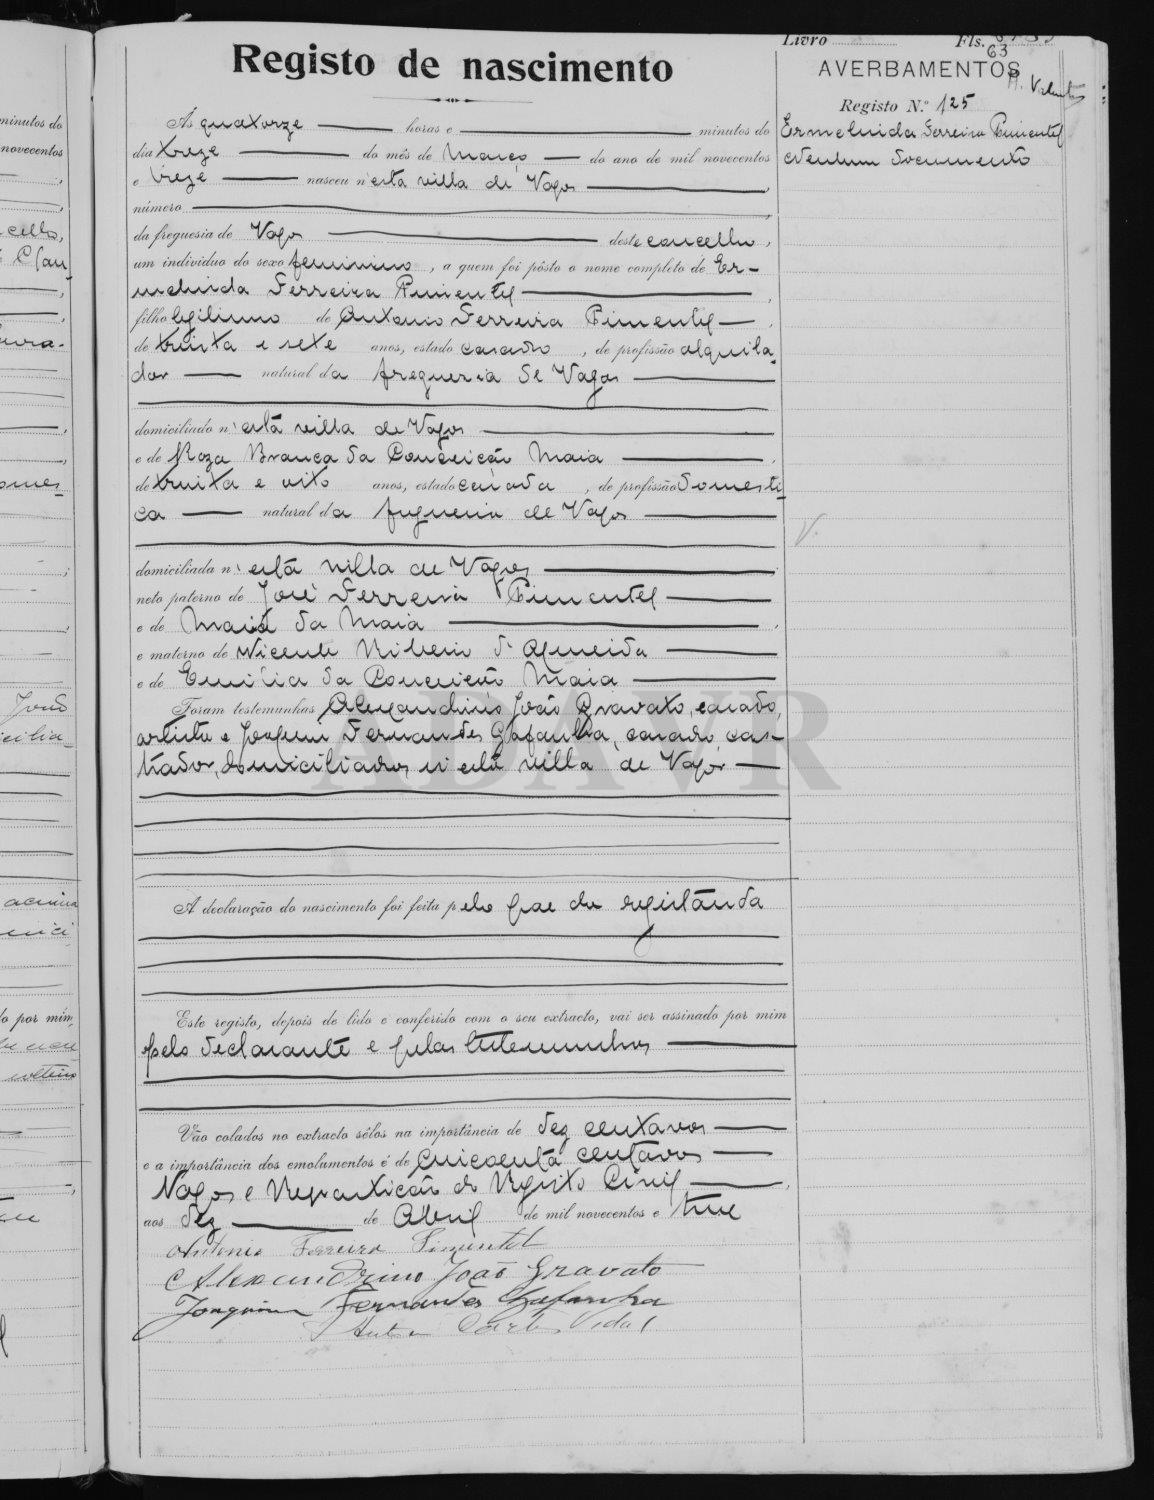 Livro Fls.
63
Registo de nascimento
AVERBAMENTOS
Registo N.º 125
Ermelinda Ferreira Pimentel
Nenhum documento
Ás quatorze horas e minutos do
dia treze do mês de Março do ano de mil novecentos
e treze nasceu n'esta villa de Vagos
número
da freguesia de Vagos deste concelho,
um individuo do sexo feminino, a quem foi pôsto o nome completo de Er-
melinda Ferreira Pimentel
filho legitimo de Antonio Ferreira Pimentel
de trinta e sete anos, estado casado, de profissão alquila-
dor natural da freguezia de Vagos
domiciliado n'esta villa de Vagos
e de Roza Branca da Conceição Maia
de trinta e oito anos, estado casada, de profissão domesti-
ca natural da freguezia de Vagos
domiciliada n'esta villa de Vagos
neto paterno de José Ferreira Pimentel
e de Maria da Maia
e materno de Vicente Ribeiro d'Almeida
e de Emilia da Conceição Maia
Foram testemunhas Alexandrino João Gravato, casado,
artista e Joaquim Fernandes Gafanha, casado, cas-
trador, domiciliados n'esta villa de Vagos
ADAVR
A declaração do nascimento foi feita pelo pae da registanda
Este registo, depois de lido e conferido com o seu extracto, vai ser assinado por mim
pelo declarante e pelas testemunhas
Vão colados no extracto sêlos na importância de dez centavos
e a importância dos emolumentos é de cincoenta centavos
Vagos e Repartição do Registo Civil
aos dez de Abril de mil novecentos e treze
Antonio Ferreira Pimentel
Alexandrino João Gravato
Joaquim Fernandes Gafanha
Vidal